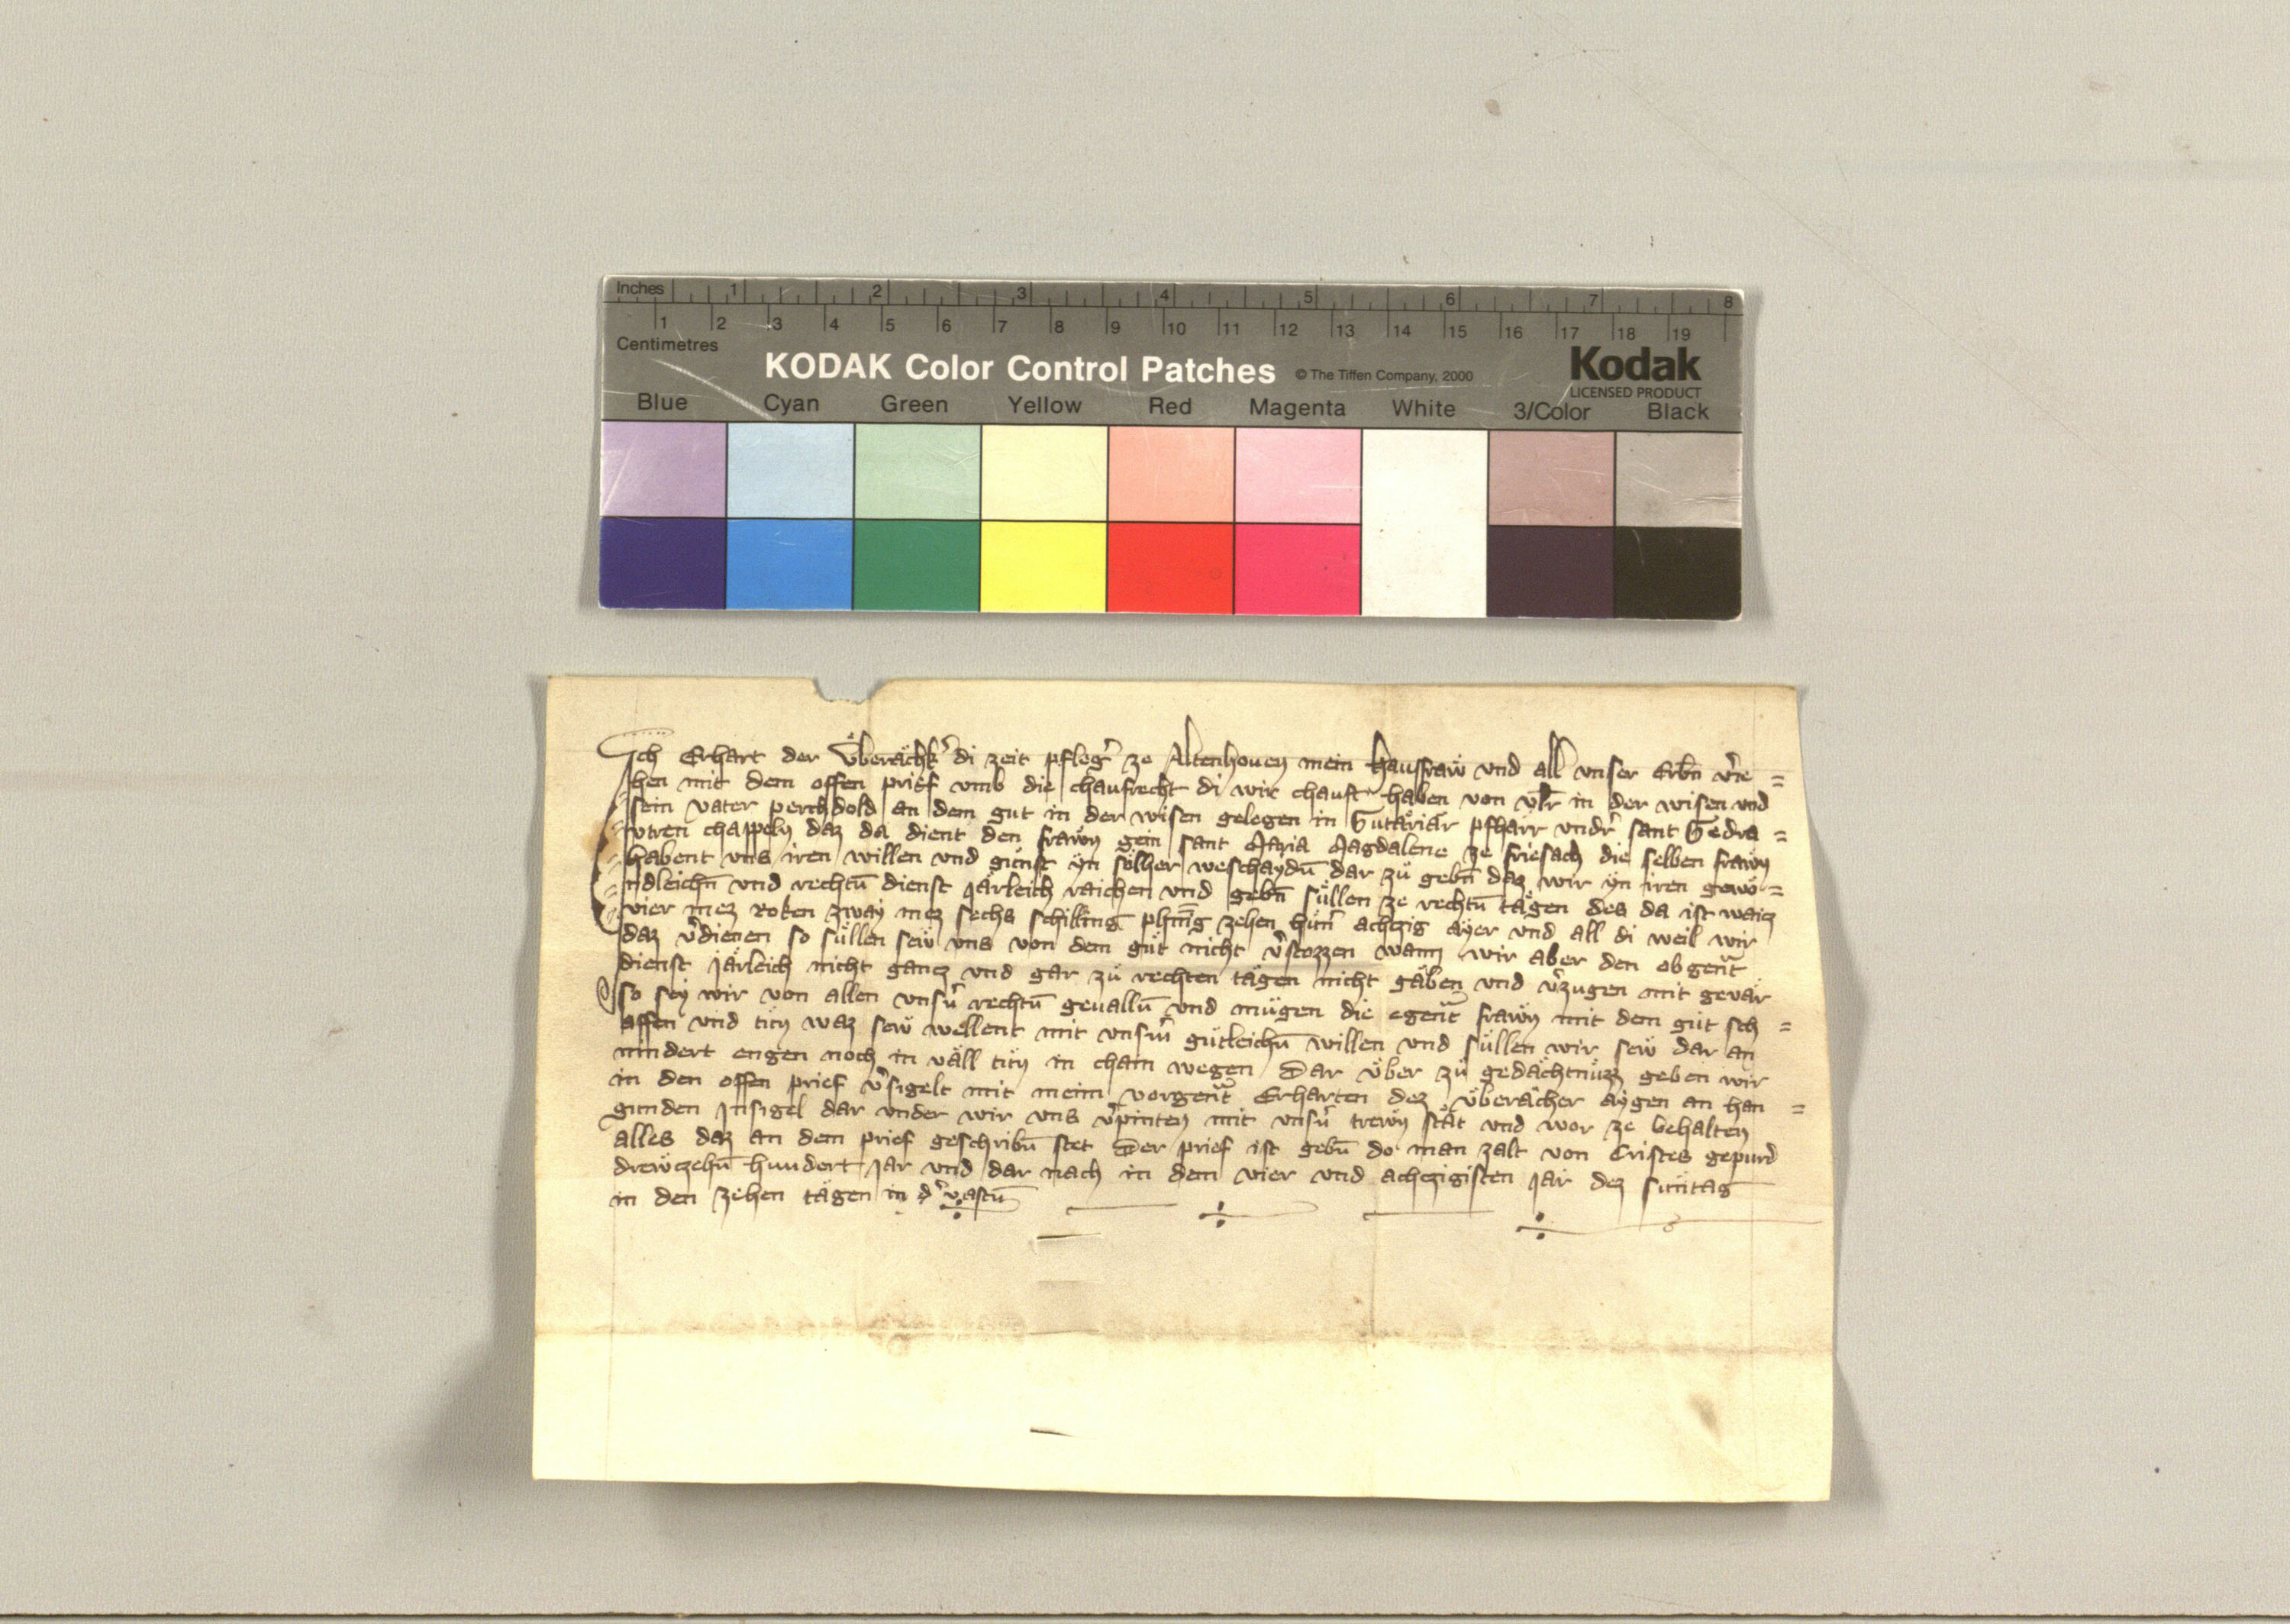 Inches 1 2 3 4 5 6 7 8
1 2 3 4 5 6 7 8 9 10 11 12 13 14 15 16 17 18 19
Centimetres
KODAK Color Control Patches © The Tiffen Company, 2000 Kodak
LICENSED PRODUCT
Blue Cyan Green Yellow Red Magenta White 3/Color Black
Ich Erhart der Vͤberächk' di zeit pfleg' ze Altenhouen mein hausfraẅ vnd all vnser Erbn̄ v'ie=
hen mit dem offen prief vmb die chaufrecht di wir chauft haben von vlr̄ in der wisen vnd
sein vater perchdold an dem gut in der wisen gelegen in Gutäriär pfharr vndr' sant Gedra=
vtren chappeln daz da dient den fraẅn gein sant Maria Magdalene ze friesach die selben fraẅn
habent vns iren willen vnd gunst ÿn sölher weschaydū dar zü gebn̄ daz wir ÿn iren gewö=
ndleichn̄ vnd rechtn̄ dienst järleich raichen vnd gebn̄ süllen ze rechtn̄ tägen des da ist waicz
vier mez Roken zway mez sechs schilling phnīg zehen hün' achzig ayer vnd all di weil wir
daz v'dienen so süllen seẅ vns von dem güt nicht v'stozzen wann wir aber den obgen̄t
dienst järleich nicht gancz vnd gar zü rechten tägen nicht gäben vnd v'zugen mit geuär
so sey wir von allen vnsn̄ rechtn̄ geuallū vnd mügen die egen̄t fraẅn mit dem güt sch=
affen vnd tün waz seẅ wellent mit vnsm̄ gütleichn̄ willen vnd süllen wir seẅ dar an
nindert engen noch in väll tün in chain wegen Dar über zü gedächtnüzz geben wir
in den offen prief v'sigelt mit meim vorgen̄t Erharten dez Vͤberächer aÿgen an han=
gunden Insigel dar vnder wir vns v'pinten mit vnsn̄ treẅn stät vnd wor ze behalten
alles daz an dem prief geschribn̄ stet Der prief ist gebn̄ do man zalt von Cristes gepurd
dreẅczehn̄ hundert jar vnd dar nach in dem vier vnd achczigisten jar dez suntag
in den zehen tägen in d' vastn̄